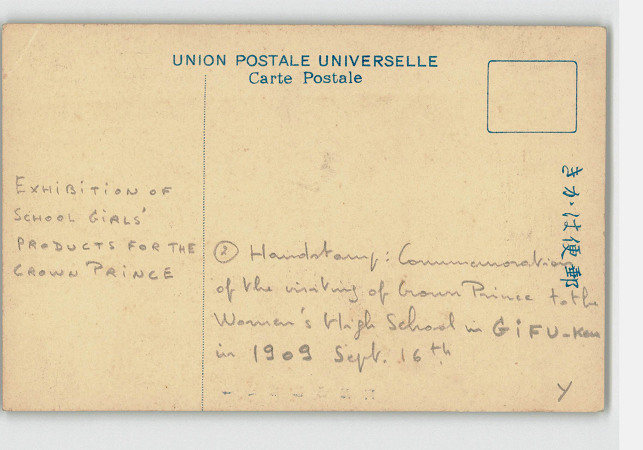 UNION POSTALE UNIVERSELLE
Carte Postale
きかは便郵
EXHIBITION OF
SCHOOL GIRLS'
PRODUCTS FOR THE
CROWN PRINCE
② Handstamp: Commemoration
of the visiting of Crown Prince to the
Women's High School in GIFU-Ken
in 1909 Sept. 16th
Y